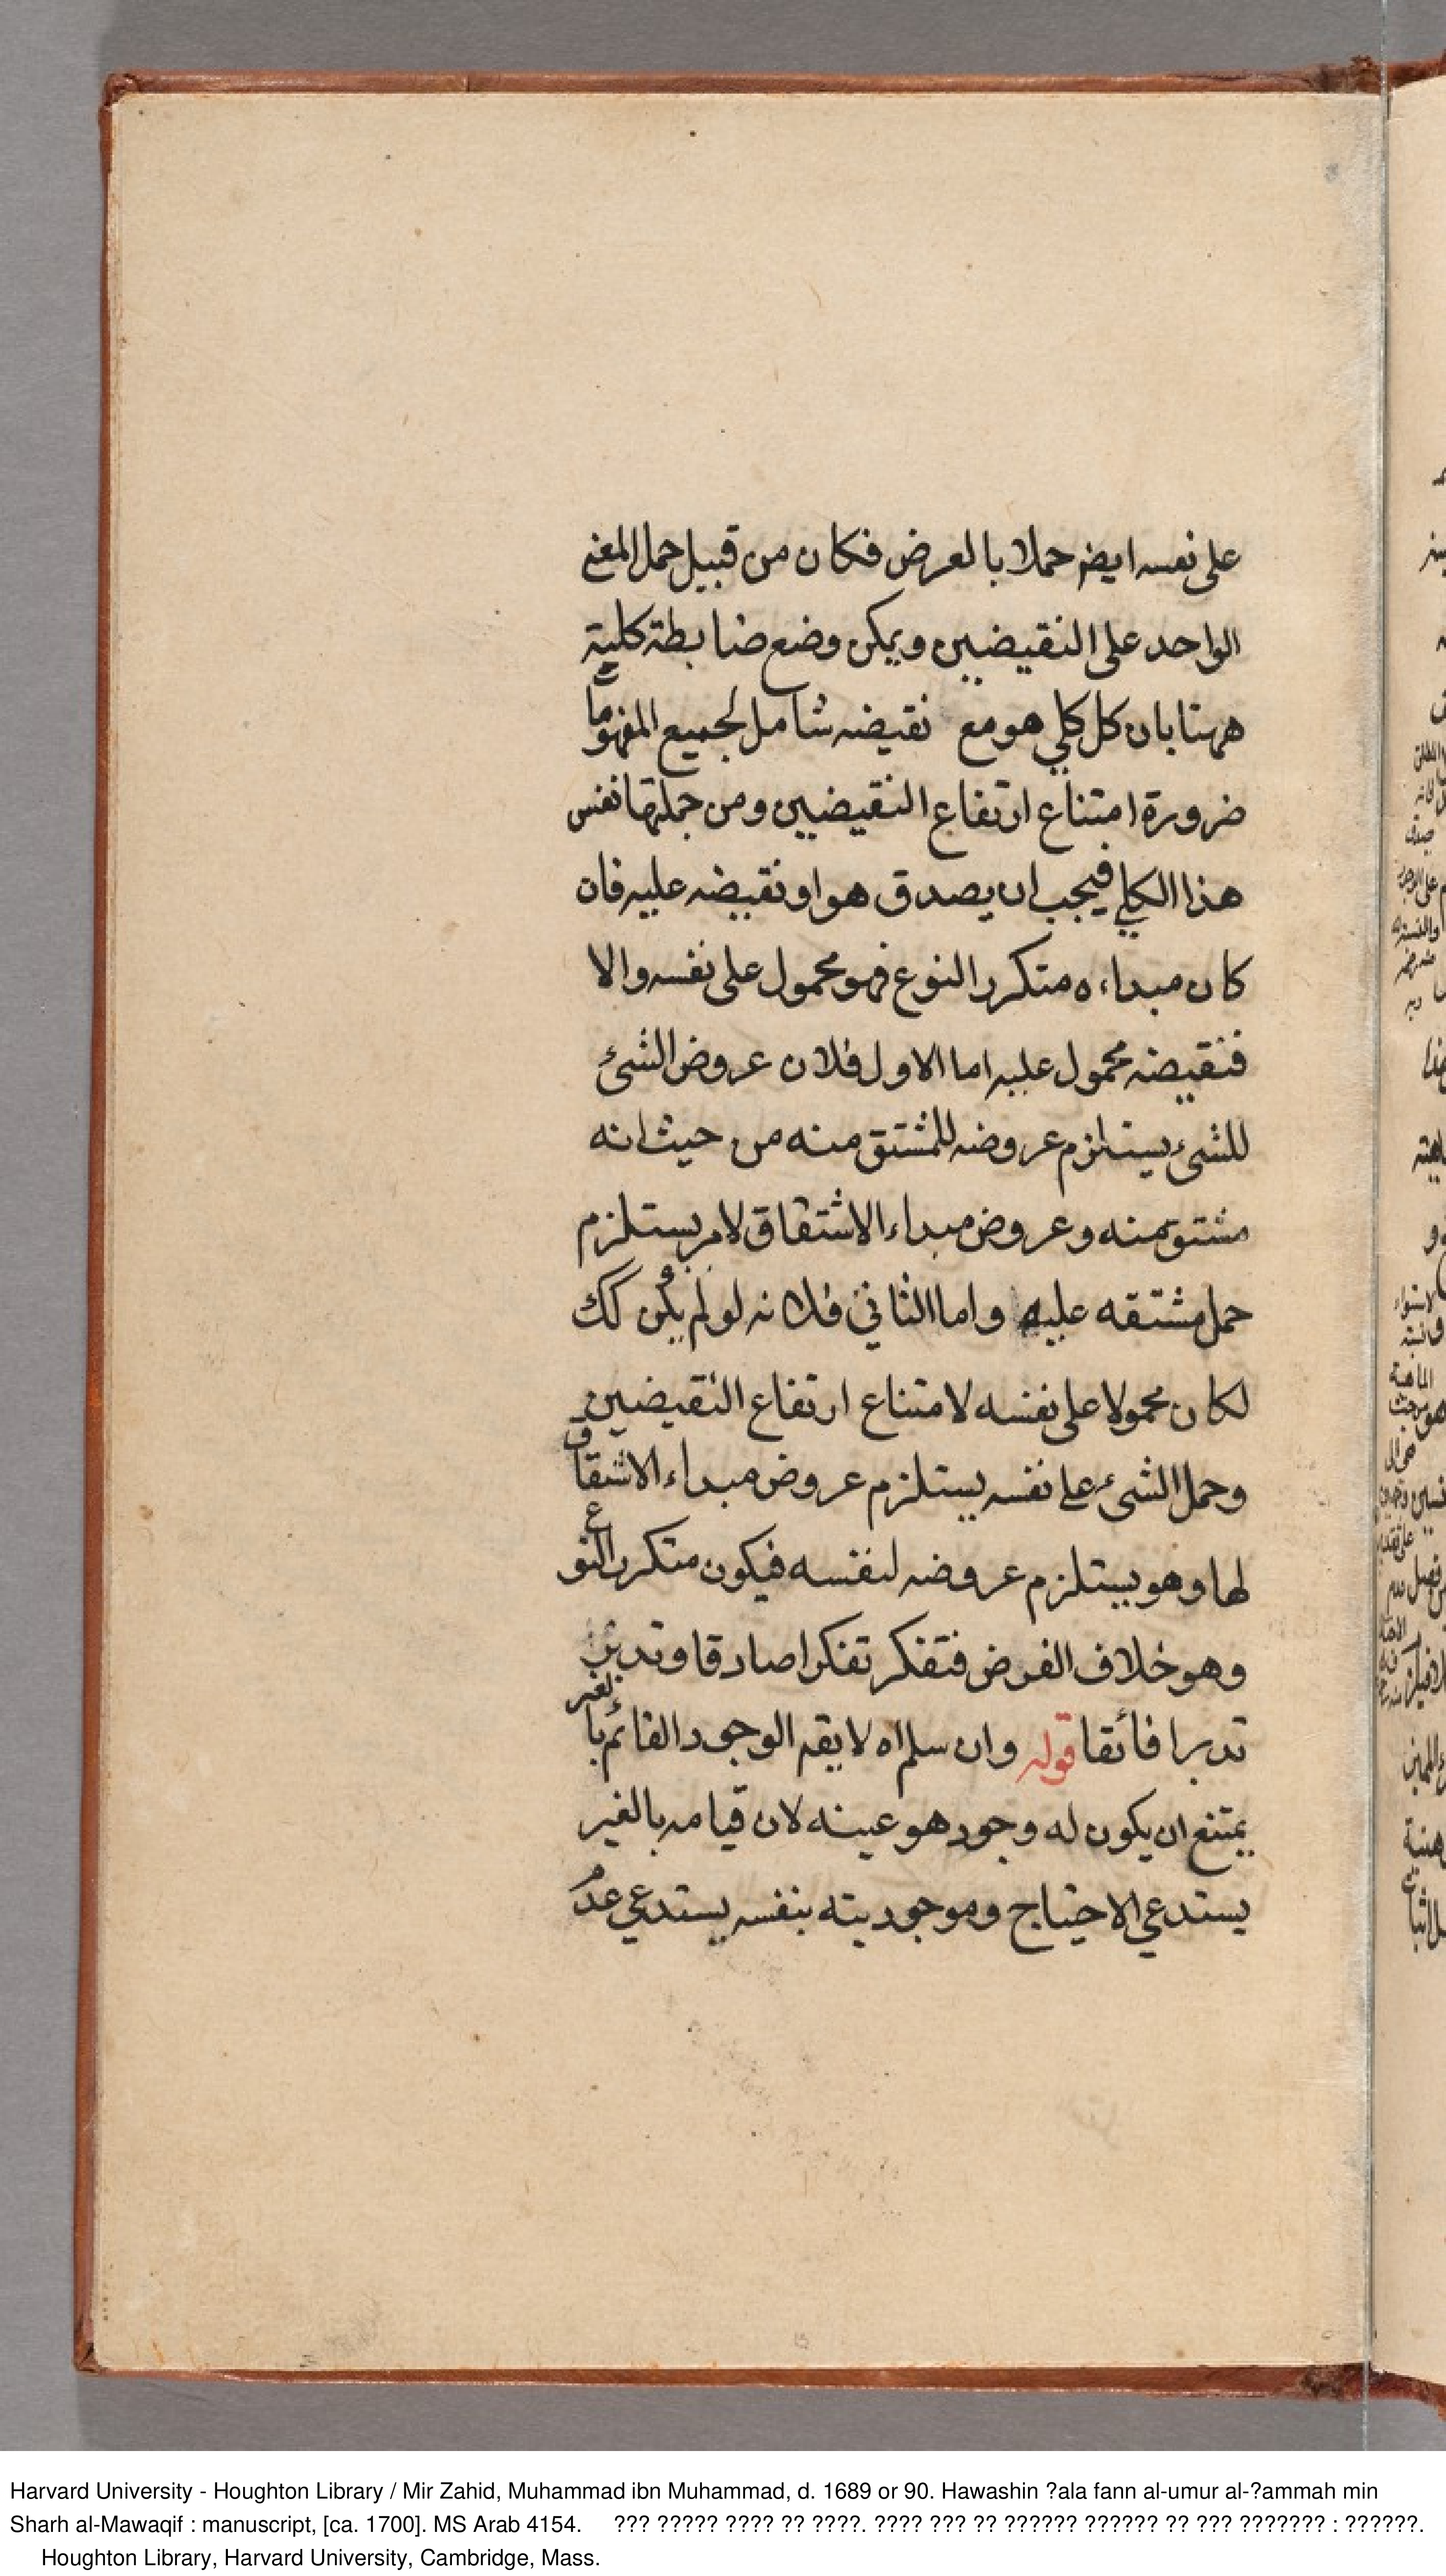 على نفسه ايض حملا بالعرض فكان من قبيل حمل المعنى
الواحد على النقيضين ويمكن وضع ضابطة كلية
ههنا بان كل كلي هو مع نقيضه شامل لجميع المفهومات
ضرورة امتناع ارتفاع النقيضين ومن جملتها نفس
هذا الكلي فيجب ان يصدق هو او نقيضه عليه فان
كان مبداءه متكرر النوع فهو محمول على نفسه والا
فنقيضه محمول عليه اما الاول فلان عروض الشئ
للشئ يستلزم عروضه للمشتق منه من حيث انه
مشتق منه وعروض مبداء الاشتقاق لامر يستلزم
حمل مشتقه عليه واما الثاني فلانه لو لم يكن كك
لكان محمولا على نفسه لامتناع ارتفاع النقيضين
وحمل الشئ على نفسه يستلزم عروض مبداء الاشتقاق
لها وهو يستلزم عروضه لنفسه فيكون متكرر النوع
وهو خلاف الفرض فتفكر تفكرا صادقا وتدبر
تدبرا فائقا قوله وان سلماه لا يقم الوجود القائم بالغير
يمتنع ان يكون له وجود هو عينه لان قيامه بالغير
يستدعي الاحتياج وموجوديته بنفسه يستدعي عدم
Harvard University - Houghton Library / Mir Zahid, Muhammad ibn Muhammad, d. 1689 or 90. Hawashin ?ala fann al-umur al-?ammah min
Sharh al-Mawaqif : manuscript, [ca. 1700]. MS Arab 4154. ??? ????? ???? ?? ????. ???? ??? ?? ?????? ?????? ?? ??? ??????? : ??????.
Houghton Library, Harvard University, Cambridge, Mass.